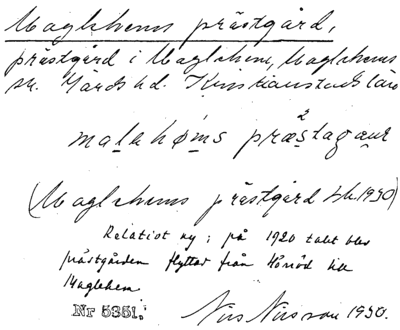 Maglehems prästgård,
prästgård i Maglehem, Maglehems
sn. Gärds hd. Kristianstads län
malehøms præstagaur
(Maglehems prästgård Jb. 1930)
Relativt ny; på 1920 talet blev
prästgården flyttad från Hörröd till
Maglehem
Nr 5351.
Nils Nilsson 1930.